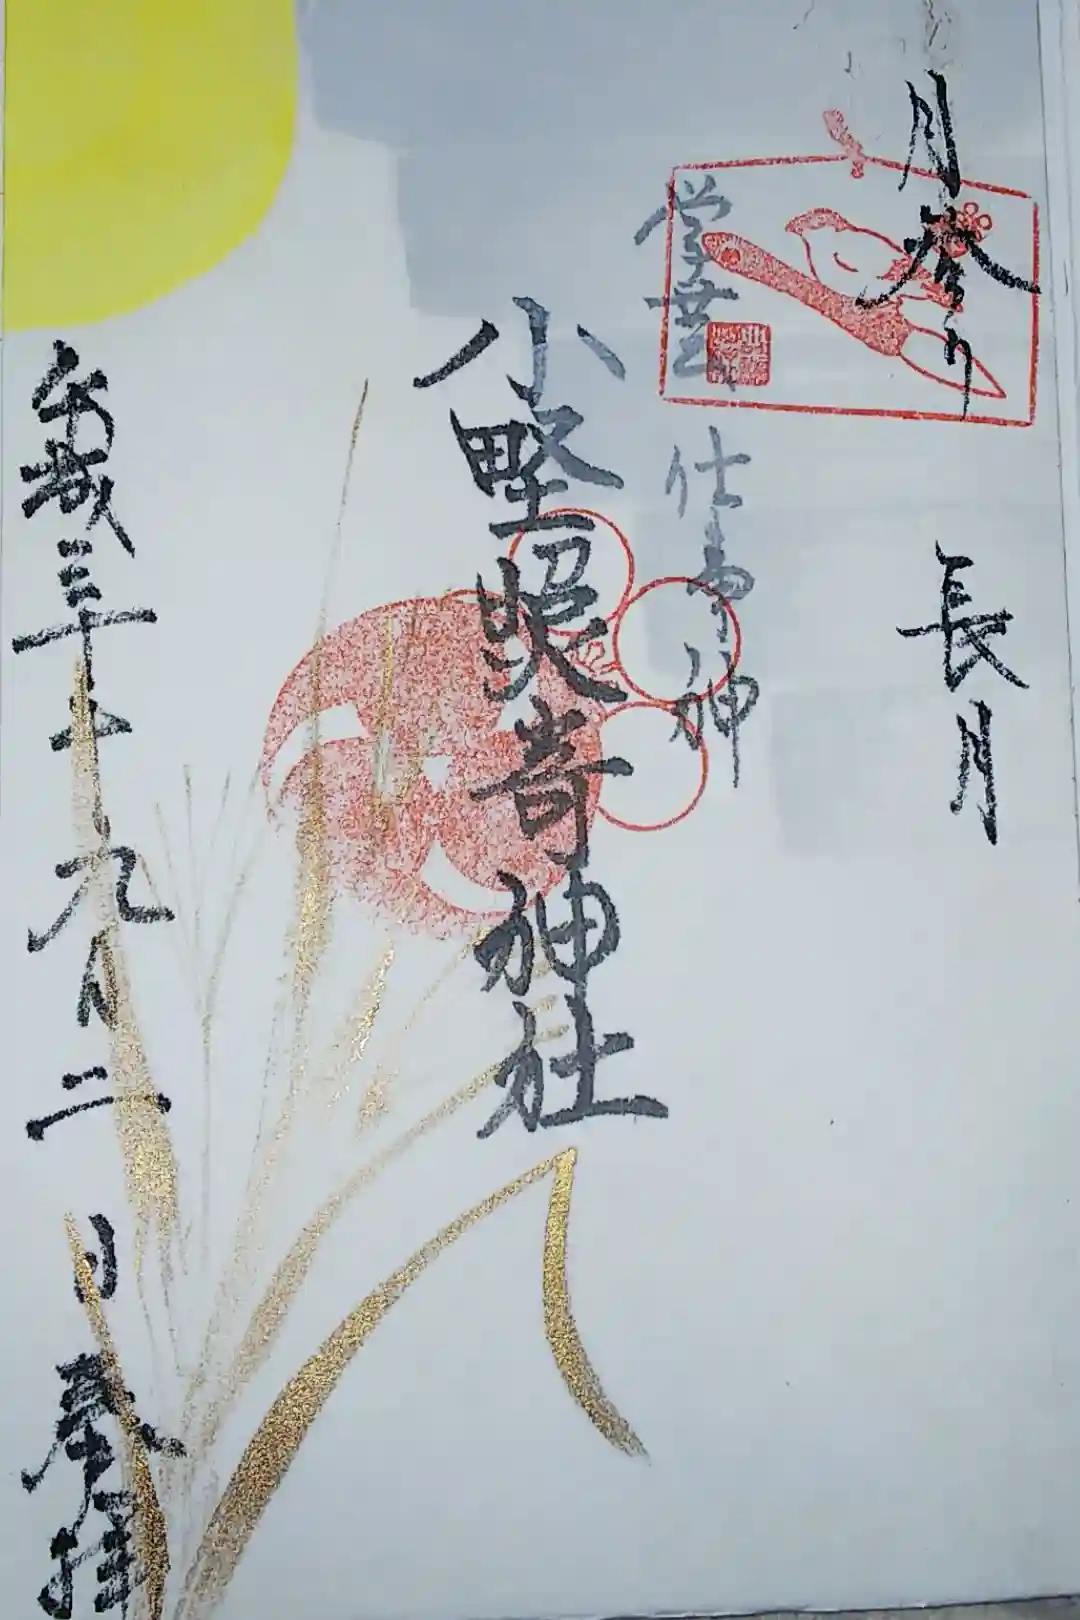 月参り 長月
学芸 仕事神
小野照崎神社
平成三十年九月二日 奉拝